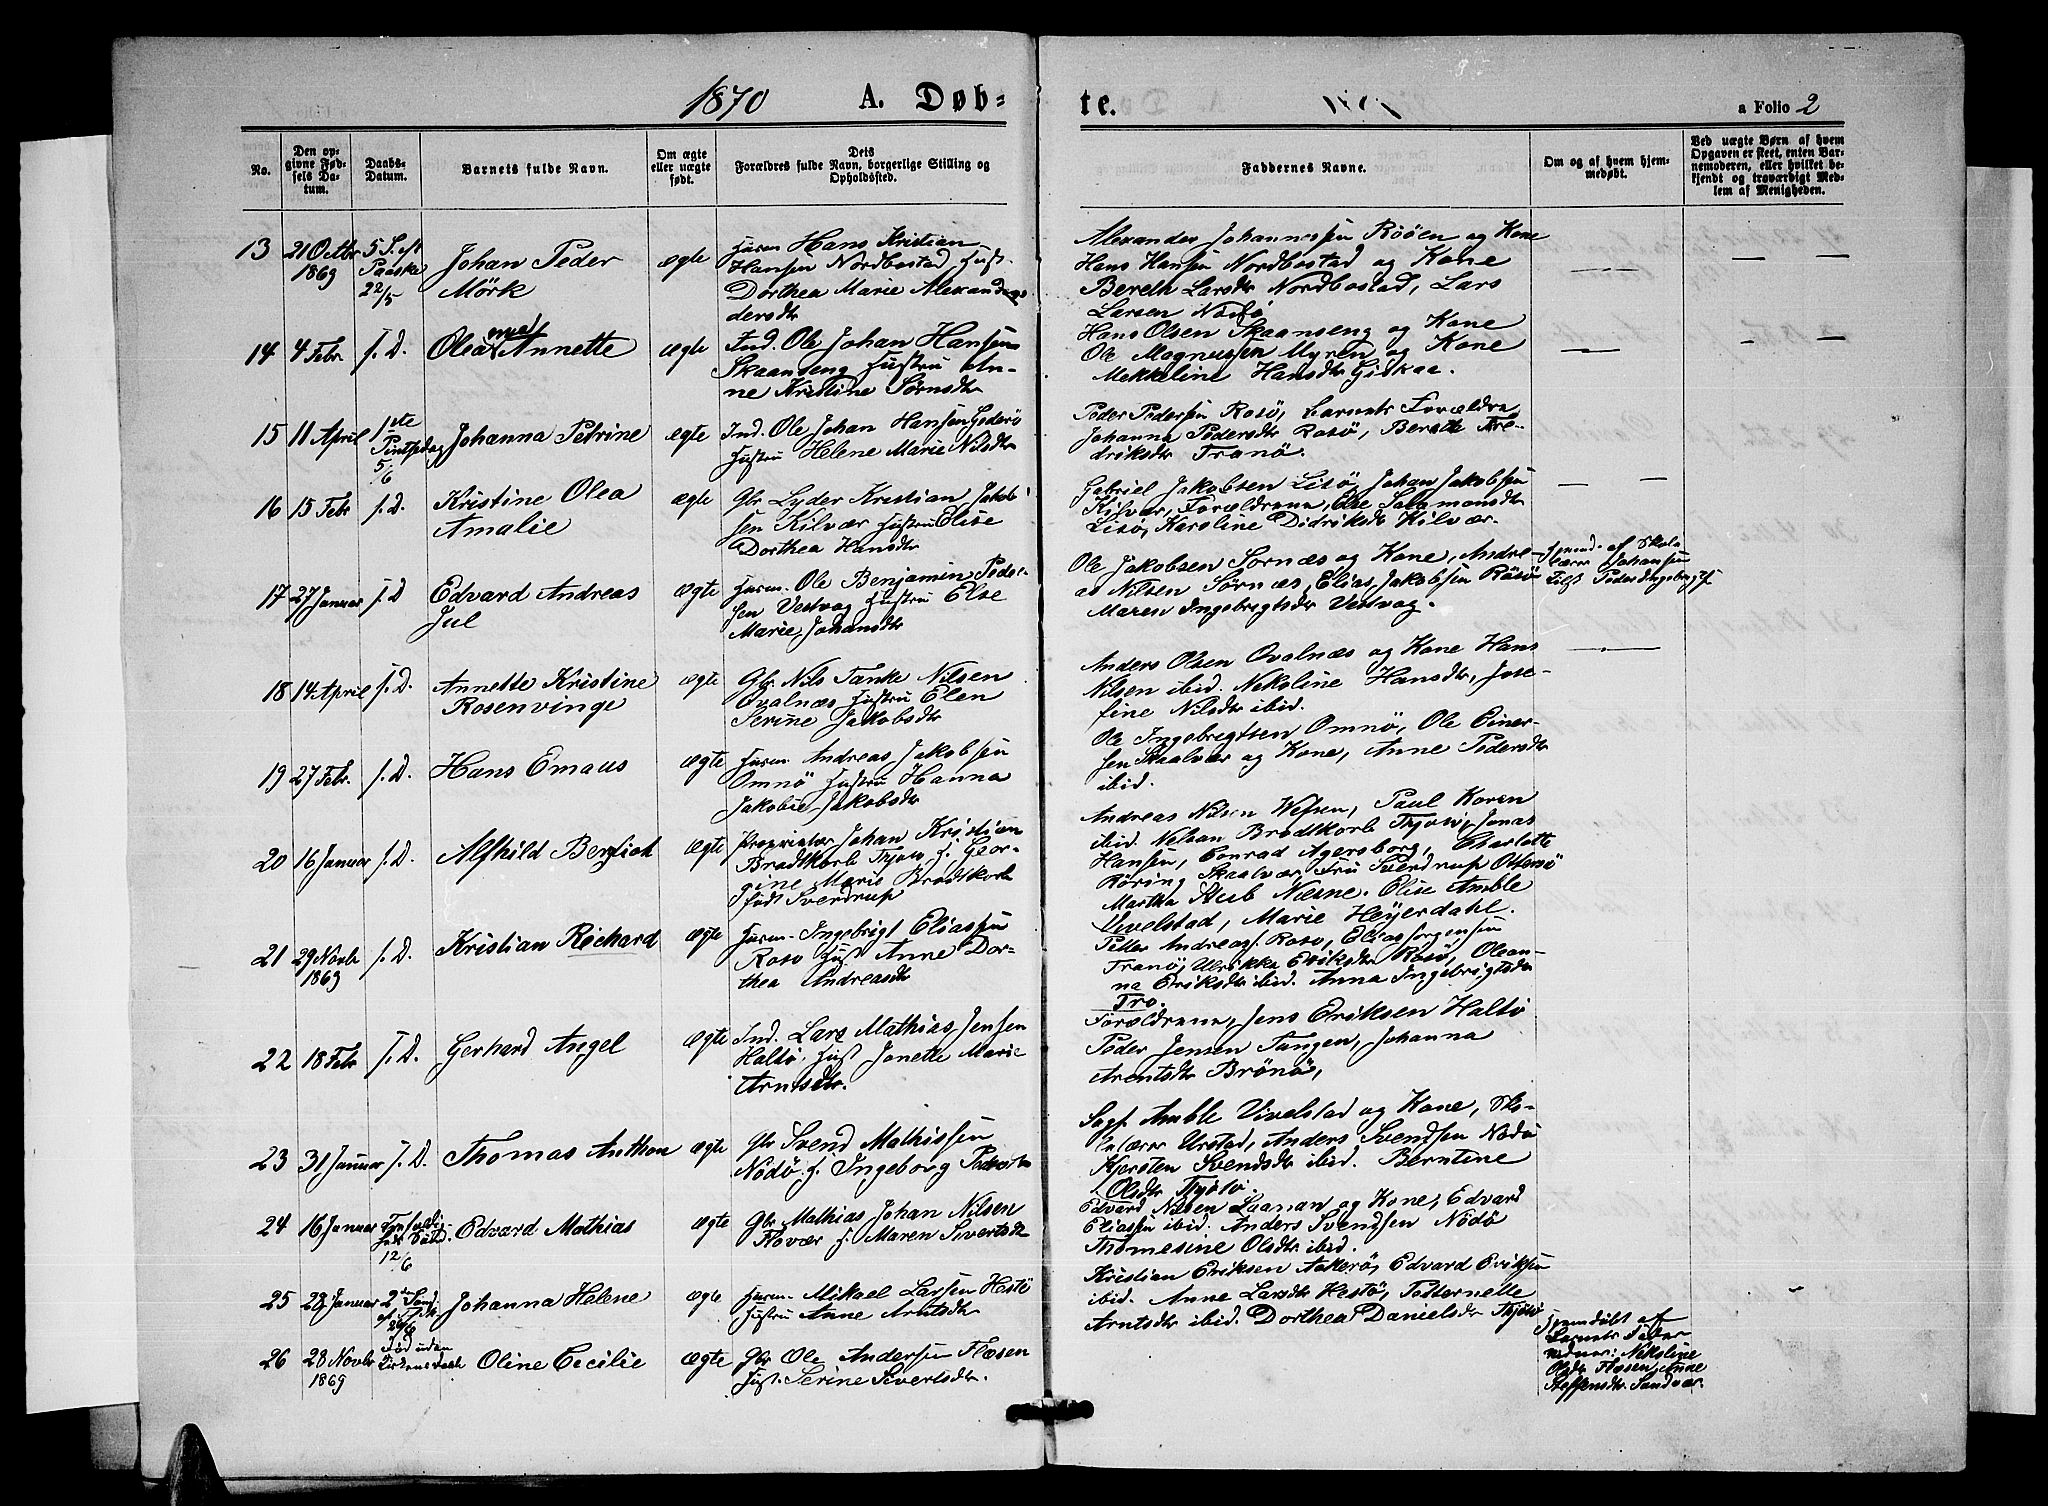 1870 A. Døb-
te.
a Folio 2
No.
Den op-
givne Fød-
sels Da-
tum.
Daabs-
Datum.
Barnets fulde Navn.
Om ægte
eller uægte
født.
Dets
Forældres fulde Navn, borgerlige Stilling og
Opholdssted.
Faddernes Navne.
Om og af hvem hjem-
medøbt.
Ved uægte Børn af hvem
Opgaven er skeet, enten Bar-
nemoderen, eller hvilket be-
kjendt og troværdigt Med-
lem af Menigheden.
13
21 Octbr
1869
5 S. eft
Paaske
22/5
Johan Peder
Mörk
ægte
Husm Hans Kristian
Hansen Nordbostad Hust.
Dorthea Marie Alexan
dersdtr
Alexander Johannessen Rööen og Kone
Hans Hansen Nordbostad og Kone
Bereth Larsdtr Nordbostad, Lars
Larsen Nordö
14
4 Febr
s. D.
Olea Annette
ægte
Ind. Ole Johan Hansen
Skaanseng Hustru An-
ne Kristine Sörnsdtr
Hans Olsen Skaanseng og Kone
Ole Magnussen Myren og Kone
Mekkeline Hansdtr Giskaa.
15
11 April
1ste
Pintsedag
5/6
Johanna Petrine
ægte
Ind. Ole Johan Hansen Gjerö
Hustru Helene Marie Nilsdtr
Peder Pedersen Rosö, Barnets Forældre
Johanna Pedersdtr Rosö, Berete Fre-
driksdtr Tranö.
16
15 Febr
s. D.
Kristine Olea
Amalie
ægte
Gbr Lyder Kristian Jakob
sen Kilvær Hustru Elise
Dorthea Hansdtr
Gabriel Jakobsen Lisö, Johan Jakobsen
Kilvær, Forældrene, Else Salamonsdtr
Lisö, Karoline Didriksdtr Kilvær.
17
27 Januar
s. D
Edvard Andreas
Jul
ægte
Husm. Ole Benjamin Peder-
sen Vestvog Hustru Else
Marie Johansdtr
Ole Jakobsen Sornæs og Kone, Andre-
as Nilsen Sörnæs, Elias Jakobsen Rösö
Maren Ingebrigtsdtr Vestvog.
Hjemd. af Skole
lærer Johansen
Tilst Peder Ingebrigts.
18
14 April
s. D.
Annette Kristine
Rosenvinge
ægte
Gbr Nils Tanke Nilsen
Qvalnæs Hustru Elen
Serine Jakobsdtr
Anders Olsen Qvalnæs og Kone Hans
Nilsen ibid. Nekoline Hansdtr, Jose-
fine Nilsdtr ibid.
19
27 Febr.
s. D.
Hans Emaus
ægte
Husm Andreas Jakobsen
Omnö Hustru Hanna
Jakobie Jakobsdtr
Ole Ingebrigtsen Omnö, Ole Einer-
sen Skaalvær og Kone, Anne Pedersdtr
ibid.
20
16 Januar
s. D.
Alfhild Bergliot
ægte
Proprietær Johan Kristian
Brodtkorb Thjotö, H. Geor-
gine Marie Brodtkorb
født Sverdrup
Andreas Nilsen Vefsen, Paul Koren
ibid. Nelson Brodtkorb Thjotö, Jonas
Hansen, Conrad Agersborg, Charlotte
Röring Skaalvær, Fru Sverdrup Ottersö
Martha Stub Næsne. Elise Amble
Vivelstad, Marie Heyerdahl.
21
29 Novbr
1869
s. D.
Kristian Richard
ægte
Husm. Ingebrigt Eliassen
Roso Hust Anne Dor-
thea Andreasdtr
Petter Andreass. Roso, Elias Jorgensen
Tranö, Ulrikka Eriksdtr Rosö, Olean-
na Eriksdtr ibid. Anna Ingebrigtsdtr
Tro.
22
18 Febr
s. D.
Gerhard Angel
ægte
Ind. Lars Mathias Jensen
Haltö, Hust Jonette Marie
Arntsdtr.
Forældrene, Jens Eriksen Haltö
Peder Jensen Tangen, Johanna
Arentsdtr Brönö,
23
31 Januar
s. D.
Thomas Anthon
ægte
Gbr Svend Mathissen
Nödö. H. Ingeborg Pedersdtr
Sagf. Amble Vivelstad og Kone, Sko-
lelærer Urstad, Anders Svendsen Nödö
Kjersten Svendsdtr ibid. Berntine
Olsdtr Thjotö.
24
16 Januar
12/6
Edvard Mathias
ægte
Gbr Mathias Johan Nilsen
Flovær H. Maren Sivertsdtr
Edvard Nilsen Laanan og Kone, Edvard
Eliassen ibid. Anders Svendsen Nödö
Thomesine Olsdtr ibid.
25
28 Januar
2den Sönd
ef. Treft
26/6
Johanna Helene
ægte
Husm. Mikael Larsen Hestö
Hustru Anne Arntsdtr
Kristian Eriksen Aakerö, Edvard Eriksen
ibid. Anne Larsdtr Hestö, Petternelle
Arntsdtr ibid. Dorthea Danielsdtr Thjötö
26
28 Novbr
1869
Död uden
Oline Cecilie
ægte
Gbr Ole Andersen Flæsen
Hust. Serine Sivertsdtr.
Hjemdöbt af
Barnets Fader
Nikoline
Olsdtr Flæsen, Anne
Steffensdtr Sandvær.